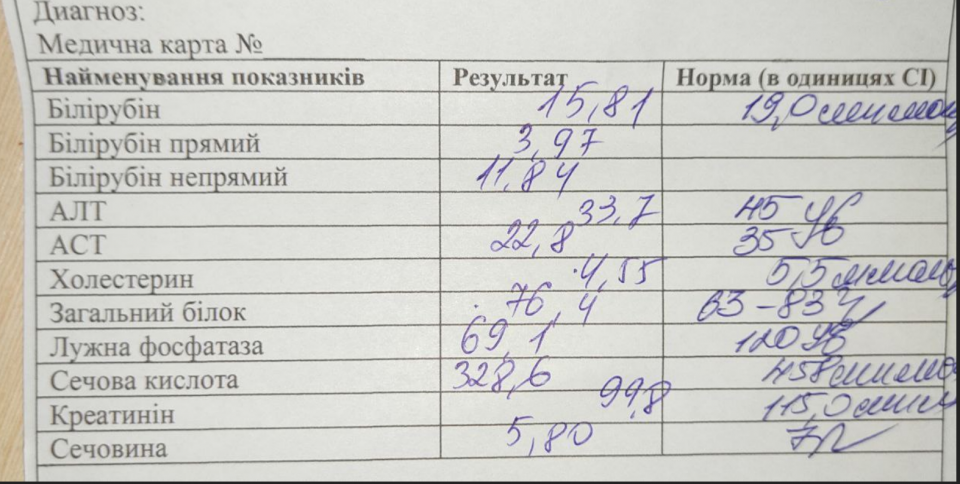 Диагноз:
Медична карта №
Найменування показників Результат Норма (в одиницях СІ)
Білірубін 15,81 19,0
Білірубін прямий 3,97
Білірубін непрямий 11,84
АЛТ 33,7 45
АСТ 22,8 35
Холестерин 4,55 5,5
Загальний білок 76,4 63-83
Лужна фосфатаза 69,1 120
Сечова кислота 328,6 458
Креатинін 99,8 115,0
Сечовина 5,80